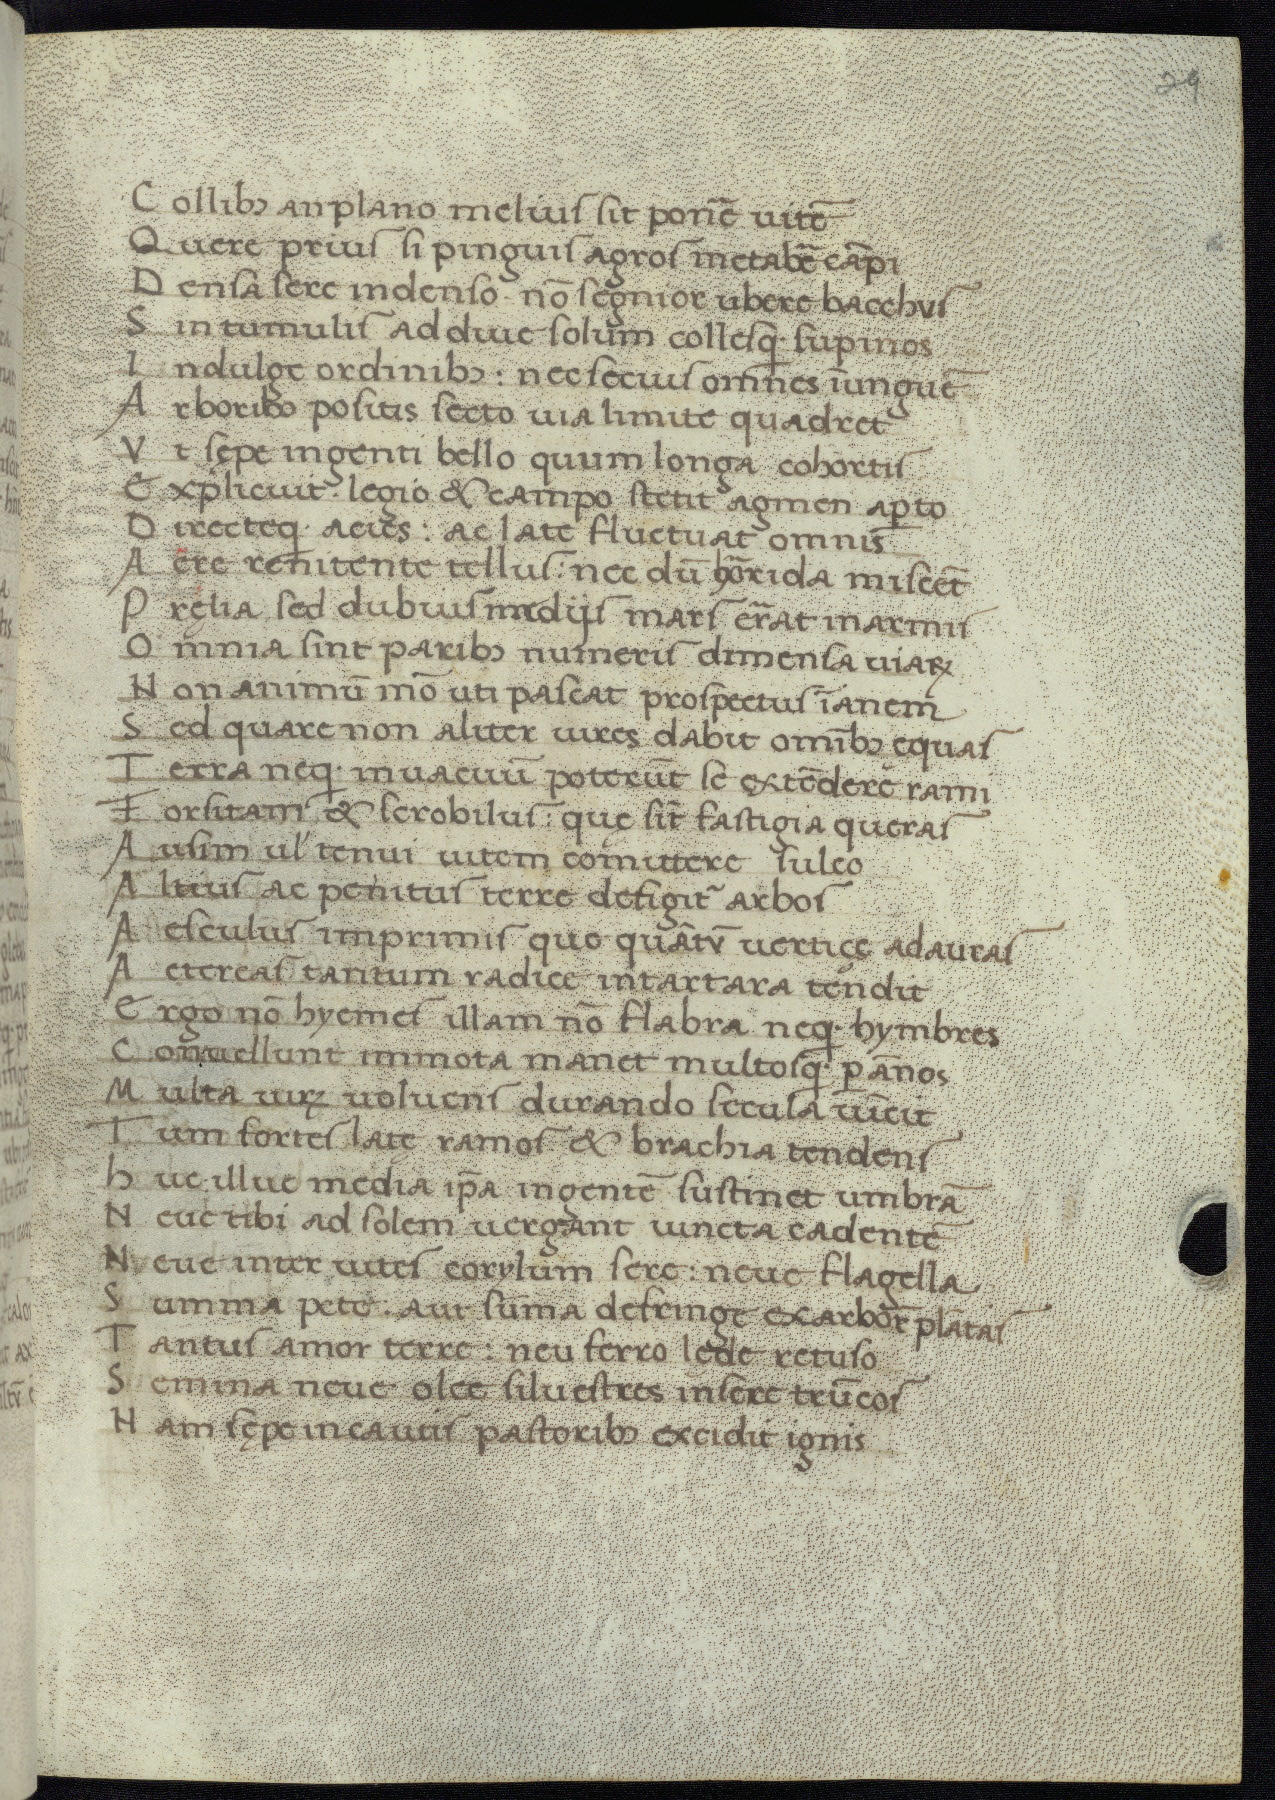 29
Collibꝰ an plano melius sit ponē̄ uitē
Quere prius si pinguis agros metabē cāpi
Densa sere indenso nō segnior ubere bacchus
Sin tumulis adclive solum collesq; supinos
Indulge ordinibꝰ: nec secius omnes īunguē
Arboribꝰ positis secto via limite quadret
Vt sępe ingenti bello quum longa cohortis
Explicuit legio & campo stetit agmen aꝑto
Directeq; acies: ac late fluctuat omnis
Aere renitente tellus: nec dū horrida miscēt
Pręlia sed dubius medijs mars er̄at in armis
Omnia sint paribꝰ numeris dimensa uiaꝝ
Non animū mō uti pascat prospectus īanem
Sed quare non aliter uires dabit omībꝰ ęquas
Terra neq; in uacuū poterūt se extēdere rami
Forsitam & scrobilus: quę siт̄ fastigia queras
Ausim ul' tenui uitem comittere sulco
Altius ac penitus terre defigit᷑ arbos
Aesculus imprimis que quātū uertice ad auras
Aetereas tantum radice in tartara tendit
Ergo nō hyemes illam nō flabra neq; hymbres
Conuellunt immota manet multosq; ꝑ annos
Multa uirꝝ uoluens durando secula uīcit
Tum fortes latę ramos & brachia tendens
huc illuc media ip̄a ingentē sustinet umbrā
Neue tibi ad solem uergant uineta cadentē
Neue inter uites corylum sere: neue flagella
Summa pete. aut sūma defringe ex arborē plātas
Tantus amor terre: neu ferro lęde retuso
Semina neue olee siluestres insere trūcos
Nam sępe incautis pastoribꝰ excidit ignis